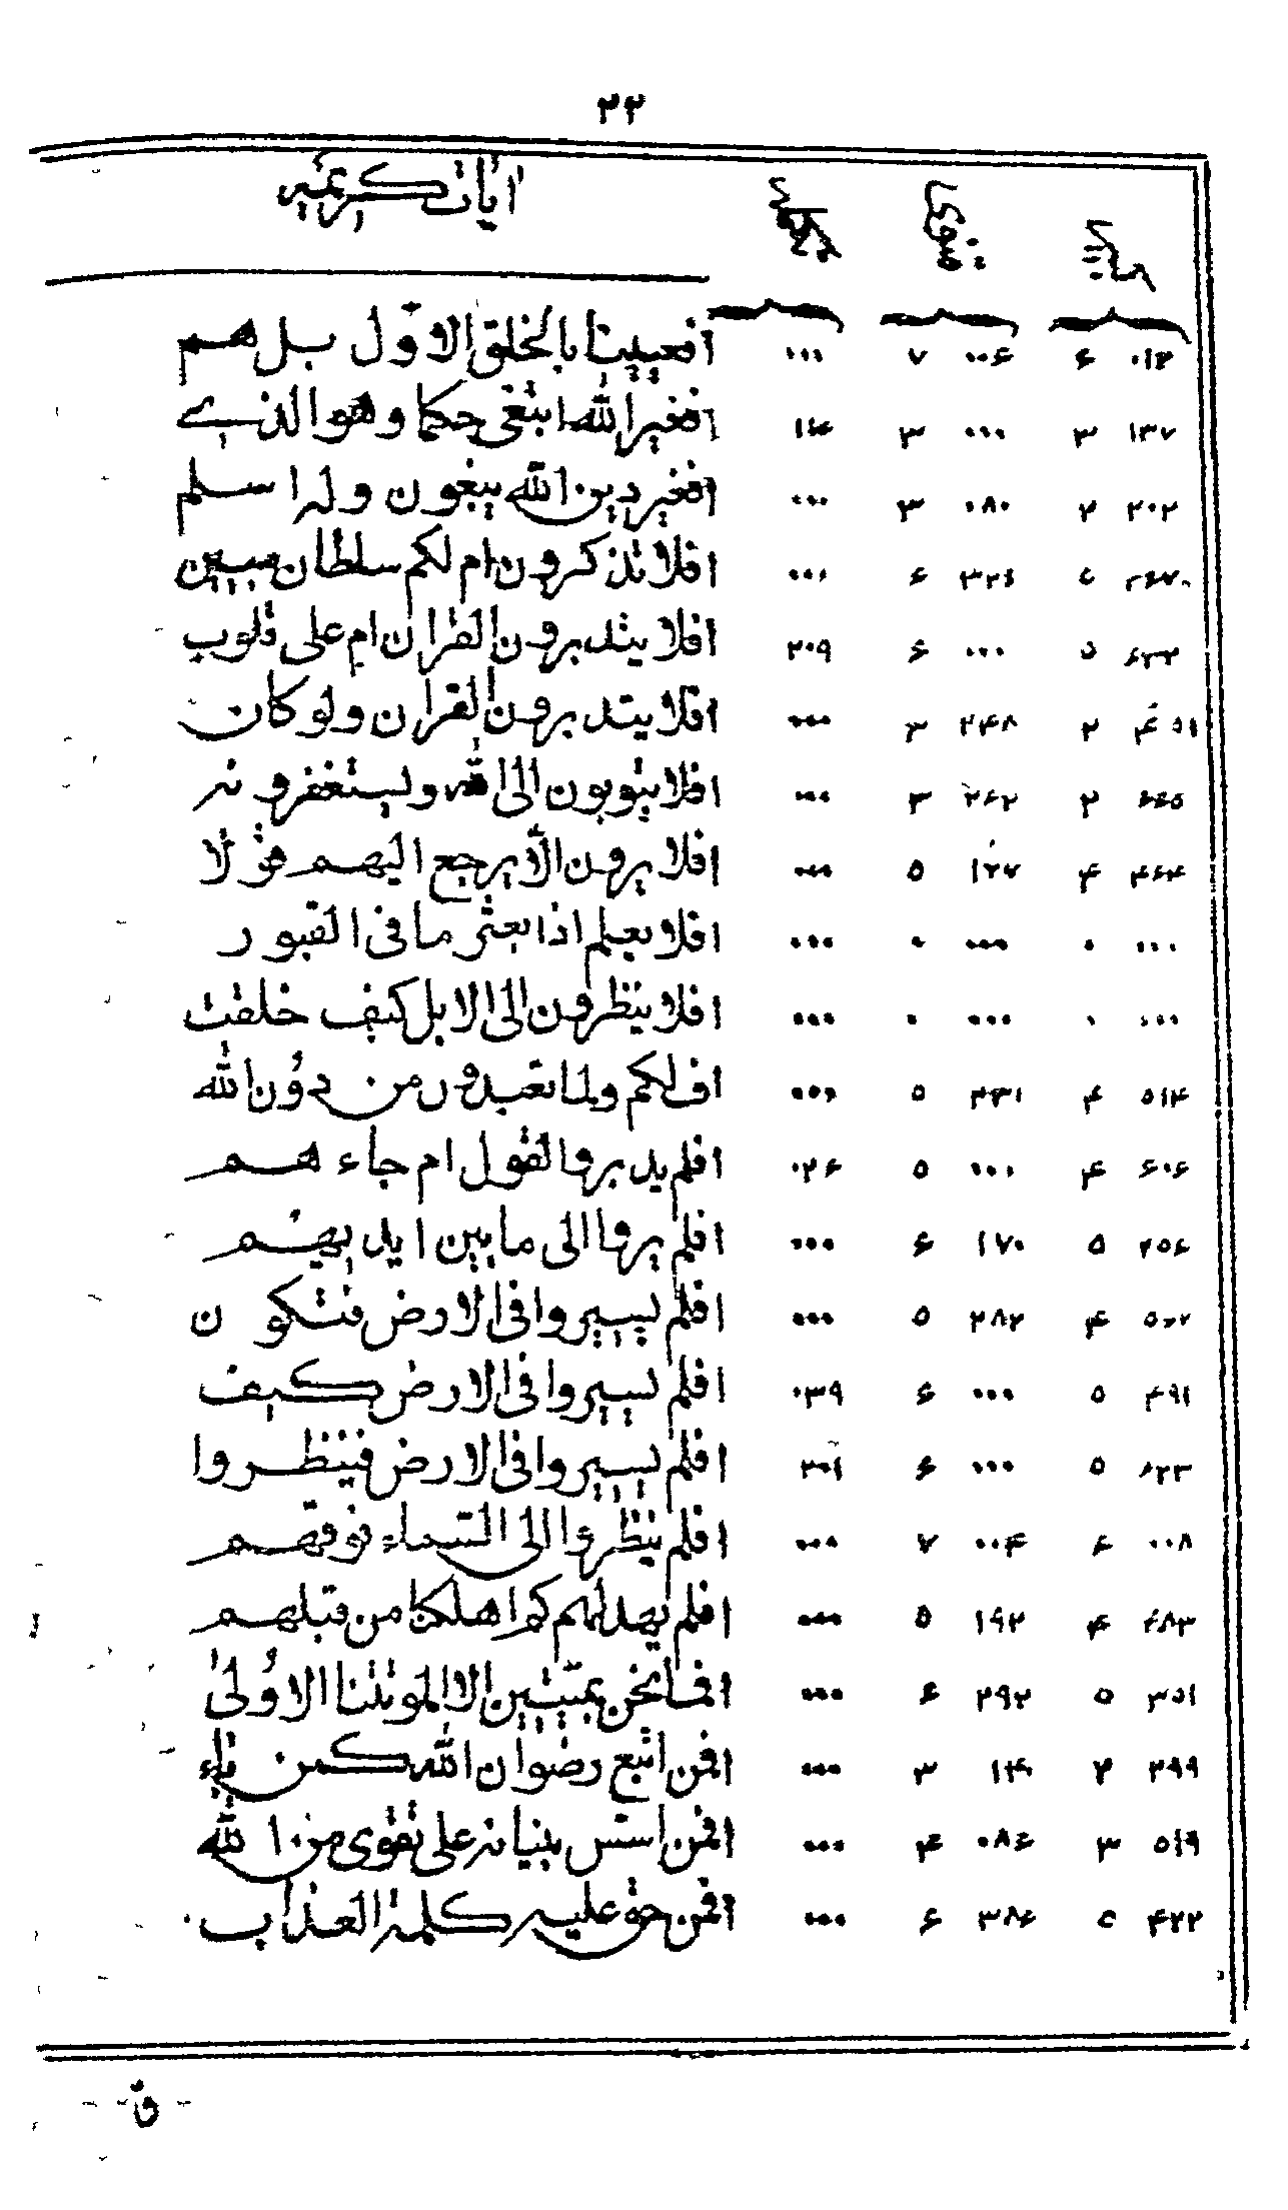 ٢٢
آيات كريمه
٠١٣ ۶ ٠٠۶ ٧ ٠٠٠ افعيينا بالخلق الاوّل بل هم
١٣٧ ٣ ٠٠٠ ٣ افغير الله ابتغى حكما وهو الذے
٢٠٢ ٢ ٠٨٠ ٣ ٠٠٠ افغير دين الله يبغون وله اسلم
۶ ٠٠٠ افلا تذكرون ام لكم سلطان مبين
۵ ٠٠٠ ۶ ٢٠٩ افلا يتدبرون القران ام على قلوب
٢ ٢۴٨ ٣ ٠٠٠ افلا يتدبرون القران ولو كان
٢ ٢۶٢ ٣ ٠٠٠ افلا يتوبون الى الله ويستغفرونه
۴۶۴ ۴ ١٢٧ ۵ ٠٠٠ افلا يرون الّا يرجع اليهم قولا
٠٠٠ ٠ ٠٠٠ ٠ ٠٠٠ افلا يعلم اذا بعثر ما فى القبور
٠٠٠ ٠ ٠٠٠ ٠ ٠٠٠ افلا ينظرون الى الابل كيف خلقت
۵١۴ ۴ ۵ ٠٠٠ اف لكم ولما تعبدون من دُون الله
۶٠۶ ۴ ٠٠٠ ۵ ٠٢۶ افلم يدبروا القول ام جاء هم
٢۵۶ ۵ ١٧٠ ۶ ٠٠٠ افلم يروا الى ما بين ايديهم
۴ ٢٨٢ ۵ ٠٠٠ افلم يسيروا فى الارض فتكون
۴٩١ ۵ ٠٠٠ ۶ ٠٣٩ افلم يسيروا فى الارض كيف
۵ ٠٠٠ ۶ ٣٠١ افلم يسيروا فى الارض فينظروا
٠٠٨ ۶ ٠٠۴ ٧ ٠٠٠ افلم ينظروا الى السّماء فوقهم
۴ ١٩٢ ۵ ٠٠٠ افلم يهد لهم كم اهلكنا من قبلهم
٣۵١ ۵ ٢٩٢ ۶ ٠٠٠ افما نحن بميّتين الا الموتتنا الاُولىٰ
٢٩٩ ٢ ٣ ٠٠٠ افمن اتبع رضوان الله كمن باء
۵١٩ ٣ ٠٨۶ ۴ ٠٠٠ افمن اسّس بنيانه على تقوى من الله
۴٢٢ ۵ ٣٨۶ ۶ ٠٠٠ افمن حق عليه كلمة العذاب